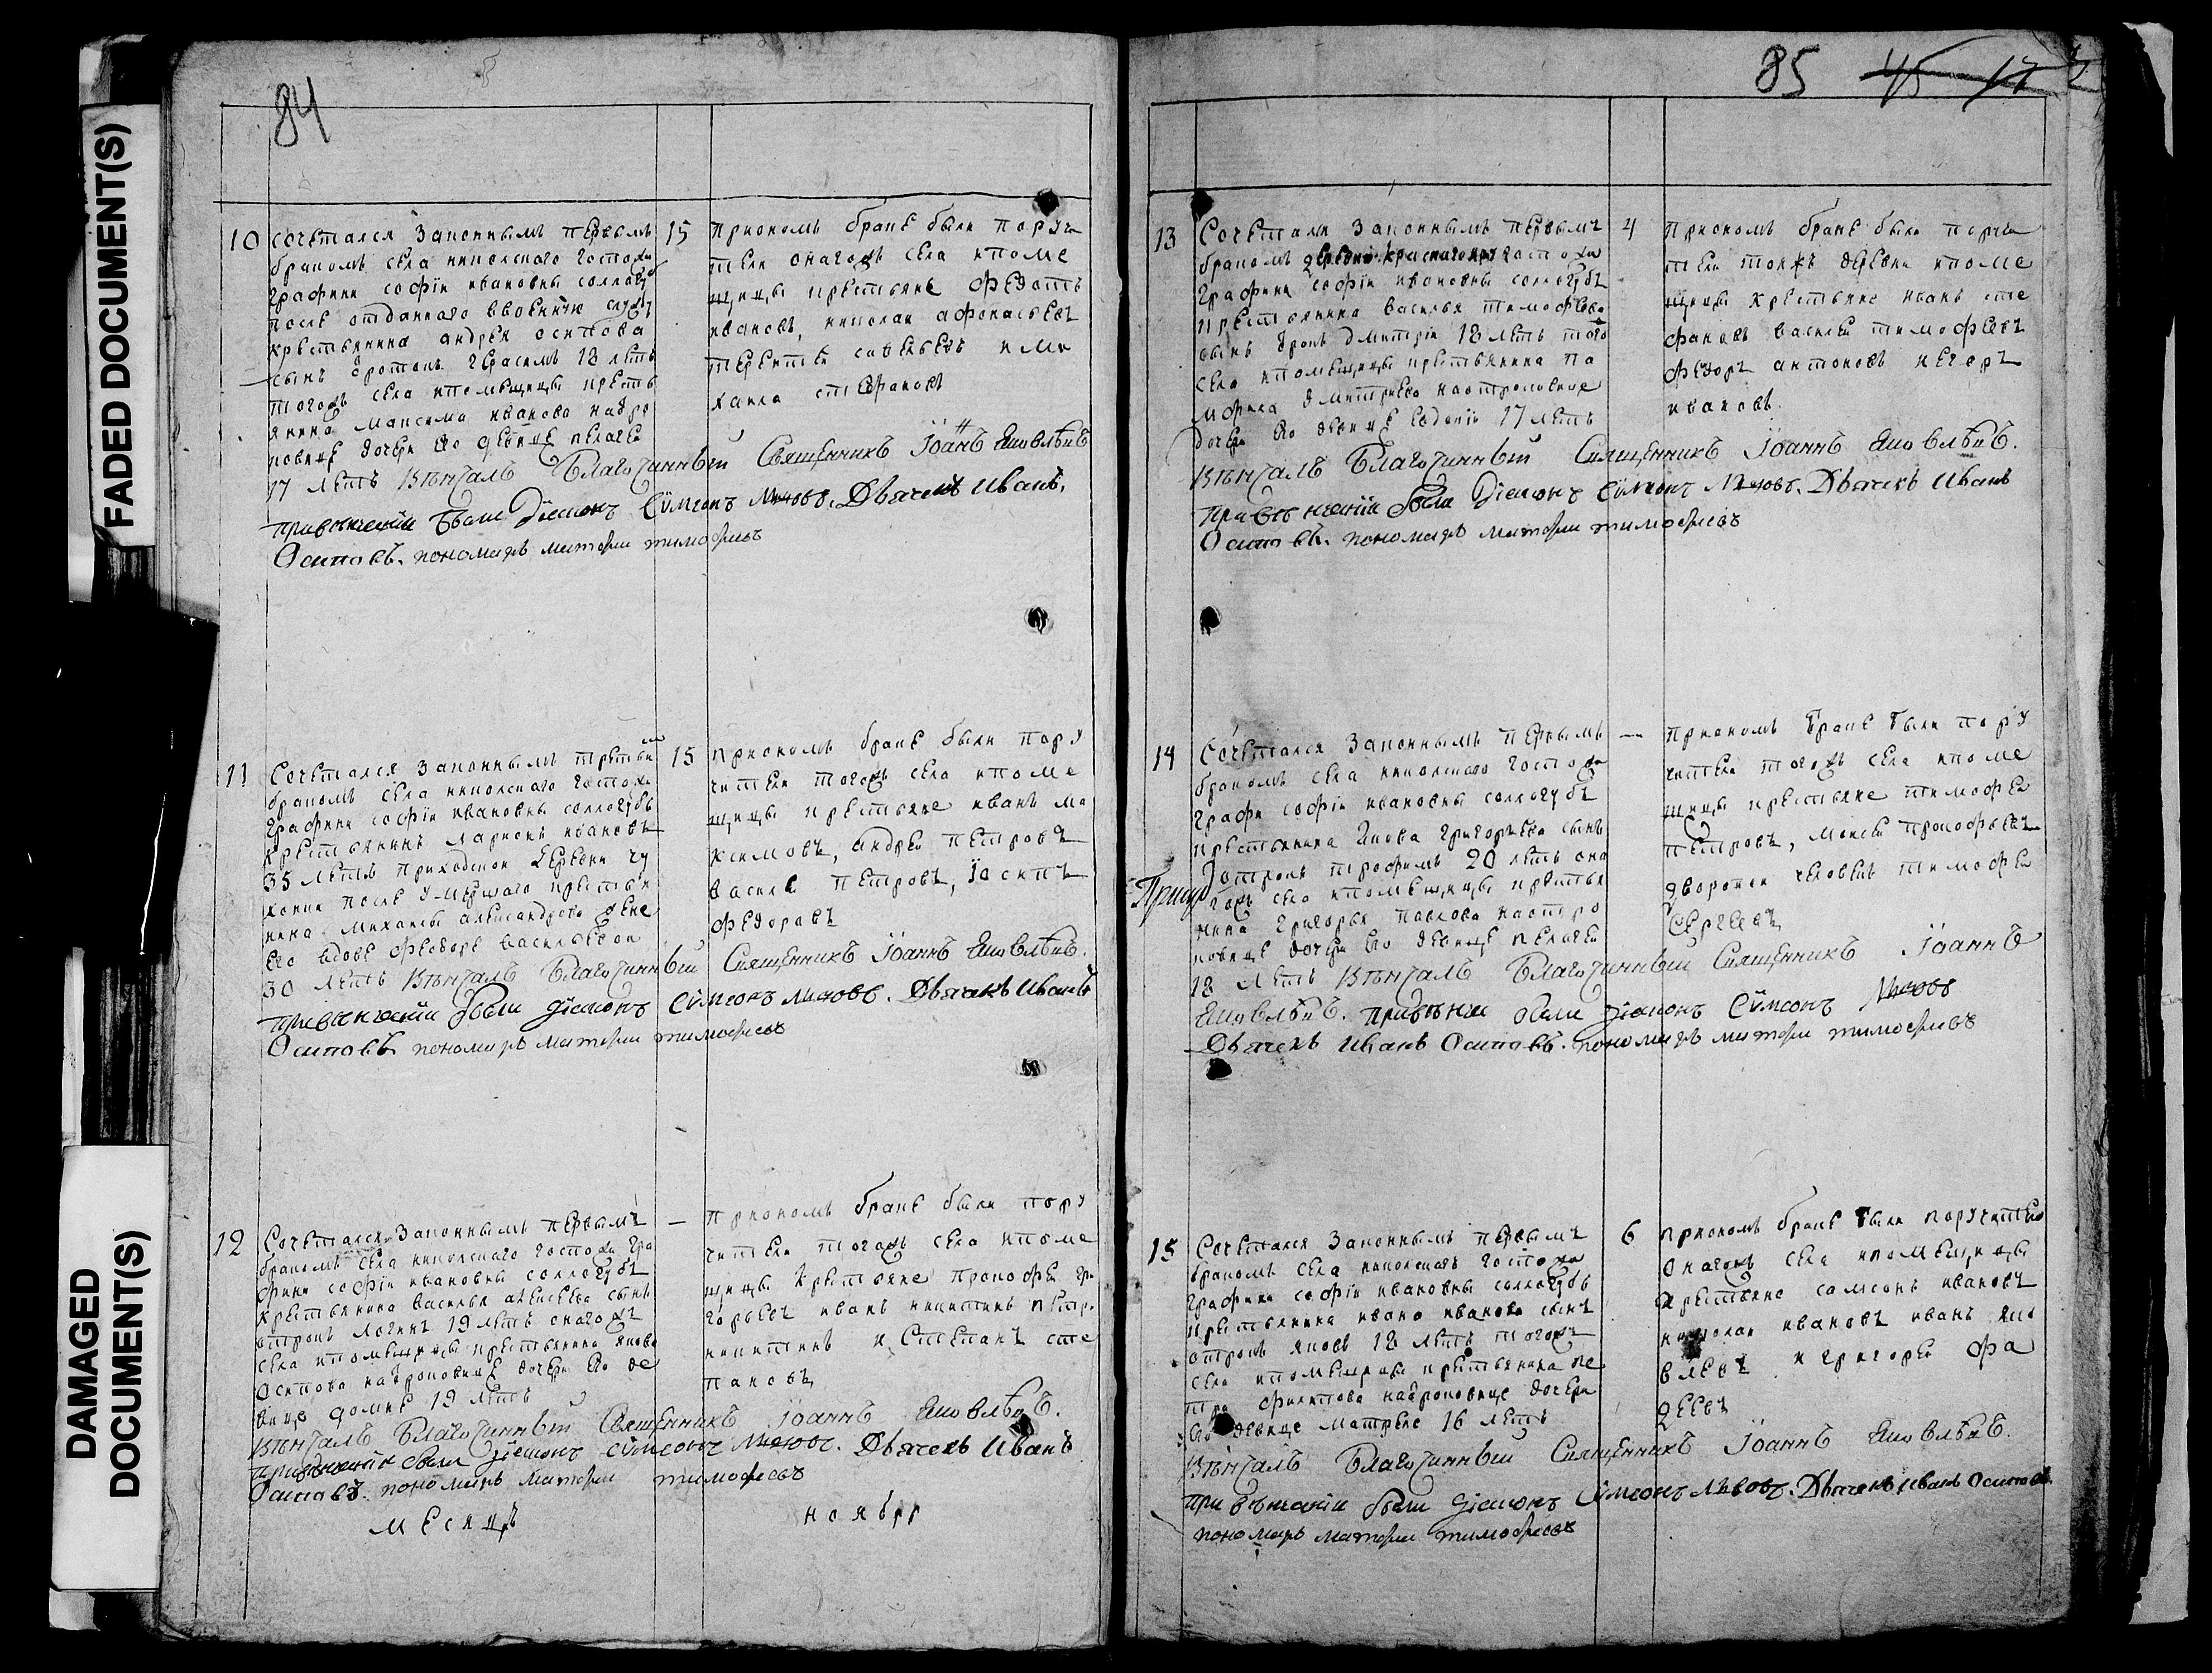 FADED DOCUMENT(S)
DAMAGED
DOCUMENT(S)
84
10 сочетался законнымъ первымъ
бракомъ села никольскаго госпожи
графини софіи ивановны соллогубъ
после отданнаго ввоенную службу
крестьянина андрея осипова
сынъ отрокъ герасимъ 18 летъ
тогожъ села ипомещицы кресть
янина максима иванова надро
ковице дочери его девице пелагеи
17 летъ Вѣнчалъ Благочинный Священникъ Іоаннъ Яковлевъ
при венчаніи были Діаконъ Сѵмеонъ Дьячекъ Иванъ
Осиповъ. пономарь матфеи тимофеевъ
15 приономъ браке были поручи
тели оногожъ села ипоме
щицы крестьяне федотъ
ивановъ, николаи афонасьевъ
терентеи савельевъ и ми
хаила стефановъ
11 Сочетался законнымъ третьим
бракомъ села никольскаго госпожи
графини софіи ивановны соллогубъ
крестьянинъ ларионъ ивановъ
35 летъ приходскои деревни
после умершаго крестья
нина михаилы александрова жене
его вдове федоре васильевои
30 летъ Вѣнчалъ Благочинный Священникъ Іоаннъ Яковлевъ.
при венчаніи были діаконъ Сѵмеонъ Дьячекъ Иванъ
Осиповъ пономарь матфеи тимофеевъ
15 приономъ браке были пору
чители тогожъ села ипоме
щицы крестьяне иванъ ма
ксимовъ, андреи петровъ
василе петровъ, іосипъ
федоравъ
12 Сочетался законнымъ первымъ
бракомъ села никольскаго госпожи гра
фини софіи ивановны соллогубъ
крестьянина василья алексеева сынъ
отрокъ логинъ 19 летъ оногожъ
села ипомещицы крестьянина якова
осипова надроковице дочери его де
вице домне 19 летъ
Вѣнчалъ Благочинный Священникъ Іоаннъ Яковлевъ.
при венчаніи были діаконъ Сѵмеонъ Дьячекъ Иванъ
Осиповъ. пономарь матфеи тимофеевъ
— приономъ браке были пору
чители тогожъ села ипоме
щицы крестьяне прокофеи гри
горьевъ иванъ никитинъ петръ
никитинъ и степанъ сте
пановъ
месяцъ ноябрь
85 45 17
13 Сочетался законнымъ первымъ
бракомъ деревни госпожи
графини софіи ивановны соллогубъ
крестьянина василья тимофеева
сынъ дмитріи 18 летъ того
села ипомещицы крестьянина па
мфила дмитриева наотроковице
дочери его девице евдокіи 17 летъ
Вѣнчалъ Благочинный Священникъ Іоаннъ Яковлевъ.
при венчаніи были Діаконъ Сѵмеонъ Дьячекъ Иванъ
Осиповъ. пономарь матфеи тимофеевъ
4 приономъ браке были поручи
тели тоижъ деревни ипоме
щицы крестьяне иванъ сте
фановъ василеи тимофеевъ
федоръ антоновъ и егоръ
ивановъ
14 Сочетался законнымъ первымъ
бракомъ села никольскаго госпожи
графи софіи ивановны соллогубъ
крестьянина якова григорьева сынъ
отрокъ трофимъ 20 летъ оно
гожъ села ипомещицы крестья
нина григорья павлова наотро
ковице дочери его девице пелагеи
18 летъ Вѣнчалъ Благочинный Священникъ Іоаннъ
Яковлевъ. были діаконъ Сѵмеонъ
Дьячекъ Иванъ Осиповъ. пономарь матфеи тимофеевъ
— приономъ браке были пору
чители тогожъ села ипоме
щицы крестьяне тимофеи
петровъ, моисеи прокофьевъ
дворовои человекъ тимофеи
сергеевъ
15 Сочетался законнымъ первымъ
бракомъ села никольскаго госпожи
графини софіи ивановны соллогубъ
крестьянина ивана иванова сынъ
отрокъ яковъ 18 летъ тогожъ
села ипомещицы крестьянина пе
тра филипова надроковице дочери
его девице матрене 16 летъ
Вѣнчалъ Благочинный Священникъ Іоаннъ Яковлевъ.
при венчаніи были діаконъ Сѵмеонъ Дьячекъ Иванъ Осиповъ
пономарь матфеи тимофеевъ
6 приономъ браке были поручители
оногожъ села ипомещицы
крестьяне самсонъ ивановъ
николаи ивановъ иванъ яко
влевъ и григореи фа
деевъ